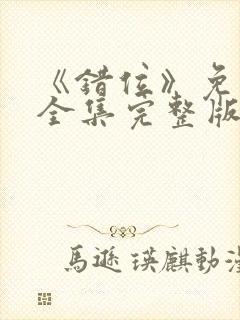 《错位》免
全集完整版
馬遜瑛麒動漫